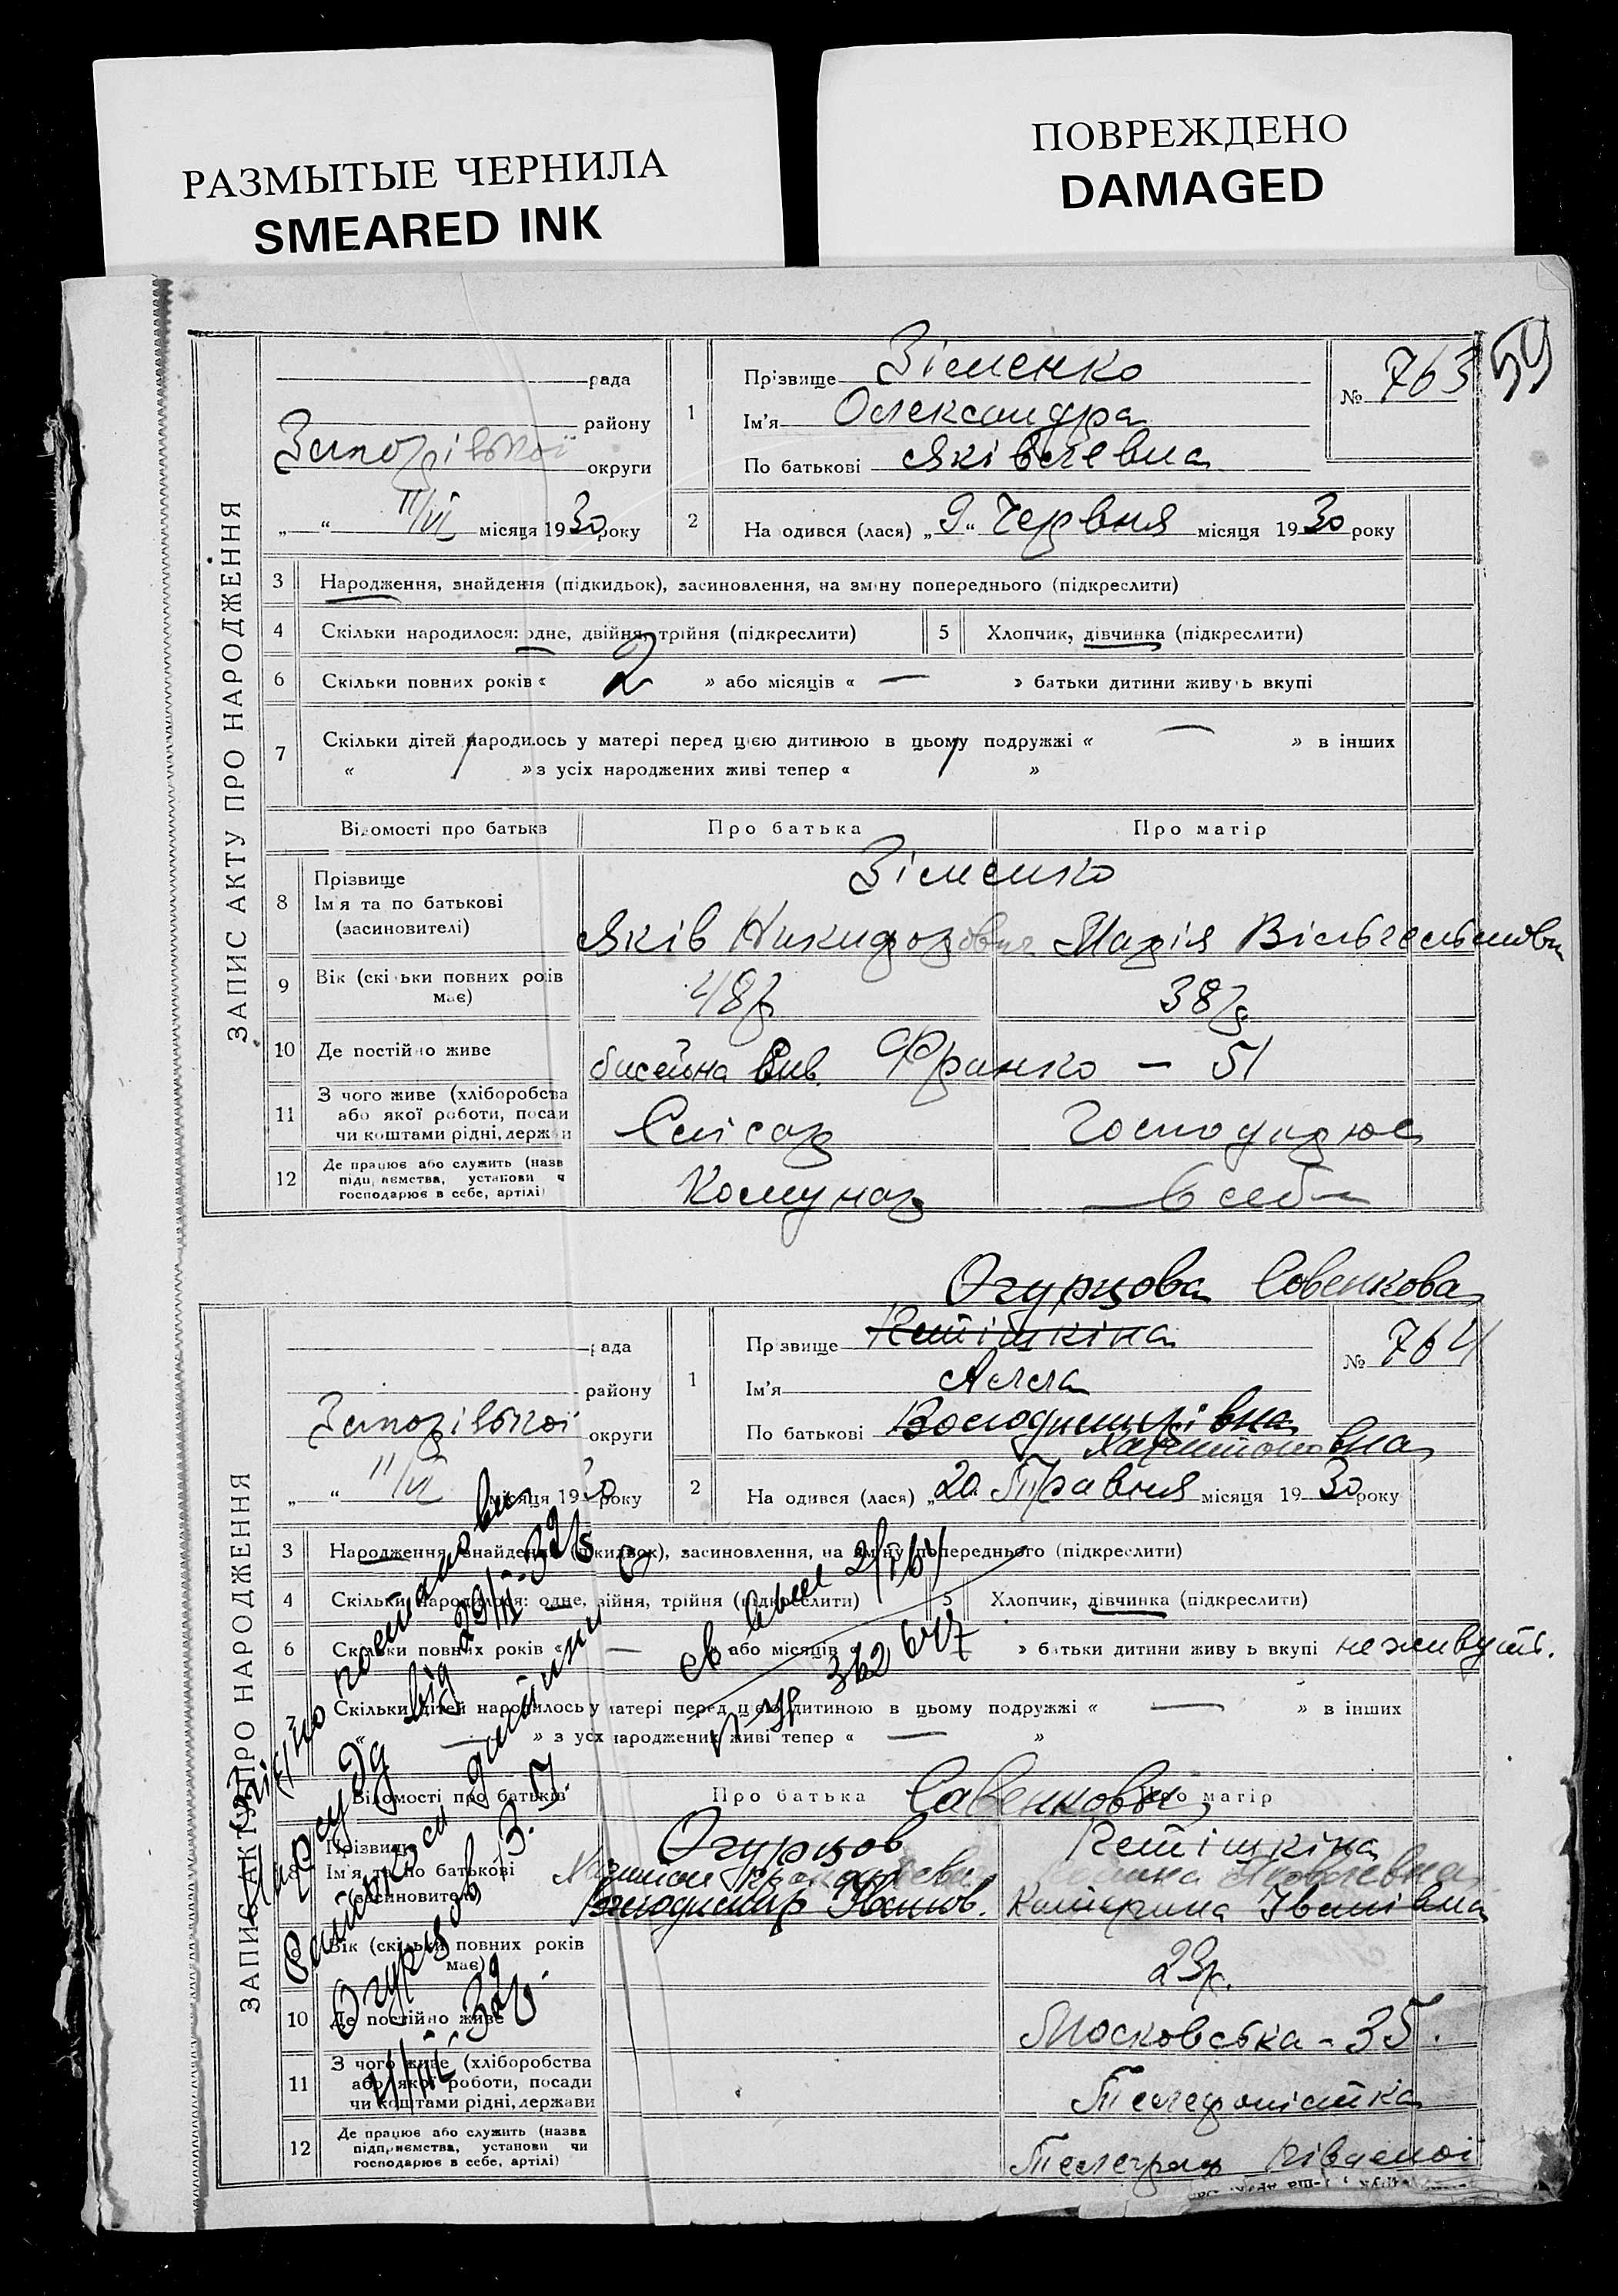 РАЗМЫТЫЕ ЧЕРНИЛА
SMEARED INK
ПОВРЕЖДЕНО
DAMAGED
59
ЗАПИС АКТУ ПРО НАРОДЖЕННЯ
рада
району
Запорізької округи
„ “ 11/VI місяця 1930 року
1
Прізвище Зіменко
Ім'я Олександра
По батькові Яківлевна
№ 763
2
Народився (лася) „9“ Червня місяця 1930 року
3 Народження, знайдення (підкидьок), засиновлення, на зміну попереднього (підкреслити)
4 Скільки народилося: одне, двійня, трійня (підкреслити)
5 Хлопчик, дівчинка (підкреслити)
6 Скільки повних років « 2 » або місяців « — » батьки дитини живуть вкупі
7 Скільки дітей народилось у матері перед цією дитиною в цьому подружжі « — » в інших
« 1 » з усіх народжених живі тепер « 1 »
Відомості про батьків
Про батька
Про матір
8 Прізвище
Ім'я та по батькові
(засиновителі)
Зіменко
Яків Никифорович Марія Вільгельмовн
9 Вік (скільки повних років
має)
48р 38р
10 Де постійно живе
Франко — 51
11 З чого живе (хліборобства
або якої роботи, посади
чи коштами рідні, держави
Слісар Господарює
12 Де працює або служить (назва
підприємства, установи чи
господарює в себе, артілі)
Комунар в себе
Огурцова Совенкова
ЗАПИС АКТУ ПРО НАРОДЖЕННЯ
рада
району
Запорізької округи
„ “ 11/VI місяця 1930 року
1
Прізвище Кетішкіна
Ім'я Алла
По батькові Володимирівна
Харитоновна
№ 764
2
Народився (лася) „20“ Травня місяця 1930 року
3 Народження, знайдення (підкидьок), засиновлення, на зміну попереднього (підкреслити)
4 Скільки народилося: одне, двійня, трійня (підкреслити)
5 Хлопчик, дівчинка (підкреслити)
6 Скільки повних років « — » або місяців « » батьки дитини живуть вкупі не живуть.
7 Скільки дітей народилось у матері перед цією дитиною в цьому подружжі « — » в інших
« — » з усіх народжених живі тепер « — »
Згідно постанови
Нарсуду від 29/II-32р
дитини
Огурцов В. З.
362647
Відомості про батьків
Про батька
Про матір
Савенковы
8 Прізвище
Ім'я та по батькові
(засиновителі)
Огурцов Кетішкіна
Володимир Іванов. Катерина Іванівна
Вік (скільки повних років
має)
23р.
10 Де постійно живе
Московська - 35.
11 З чого живе (хліборобства
або якої роботи, посади
чи коштами рідні, держави
Телефоністка
12 Де працює або служить (назва
підприємства, установи чи
господарює в себе, артілі)
Телеграф Південої